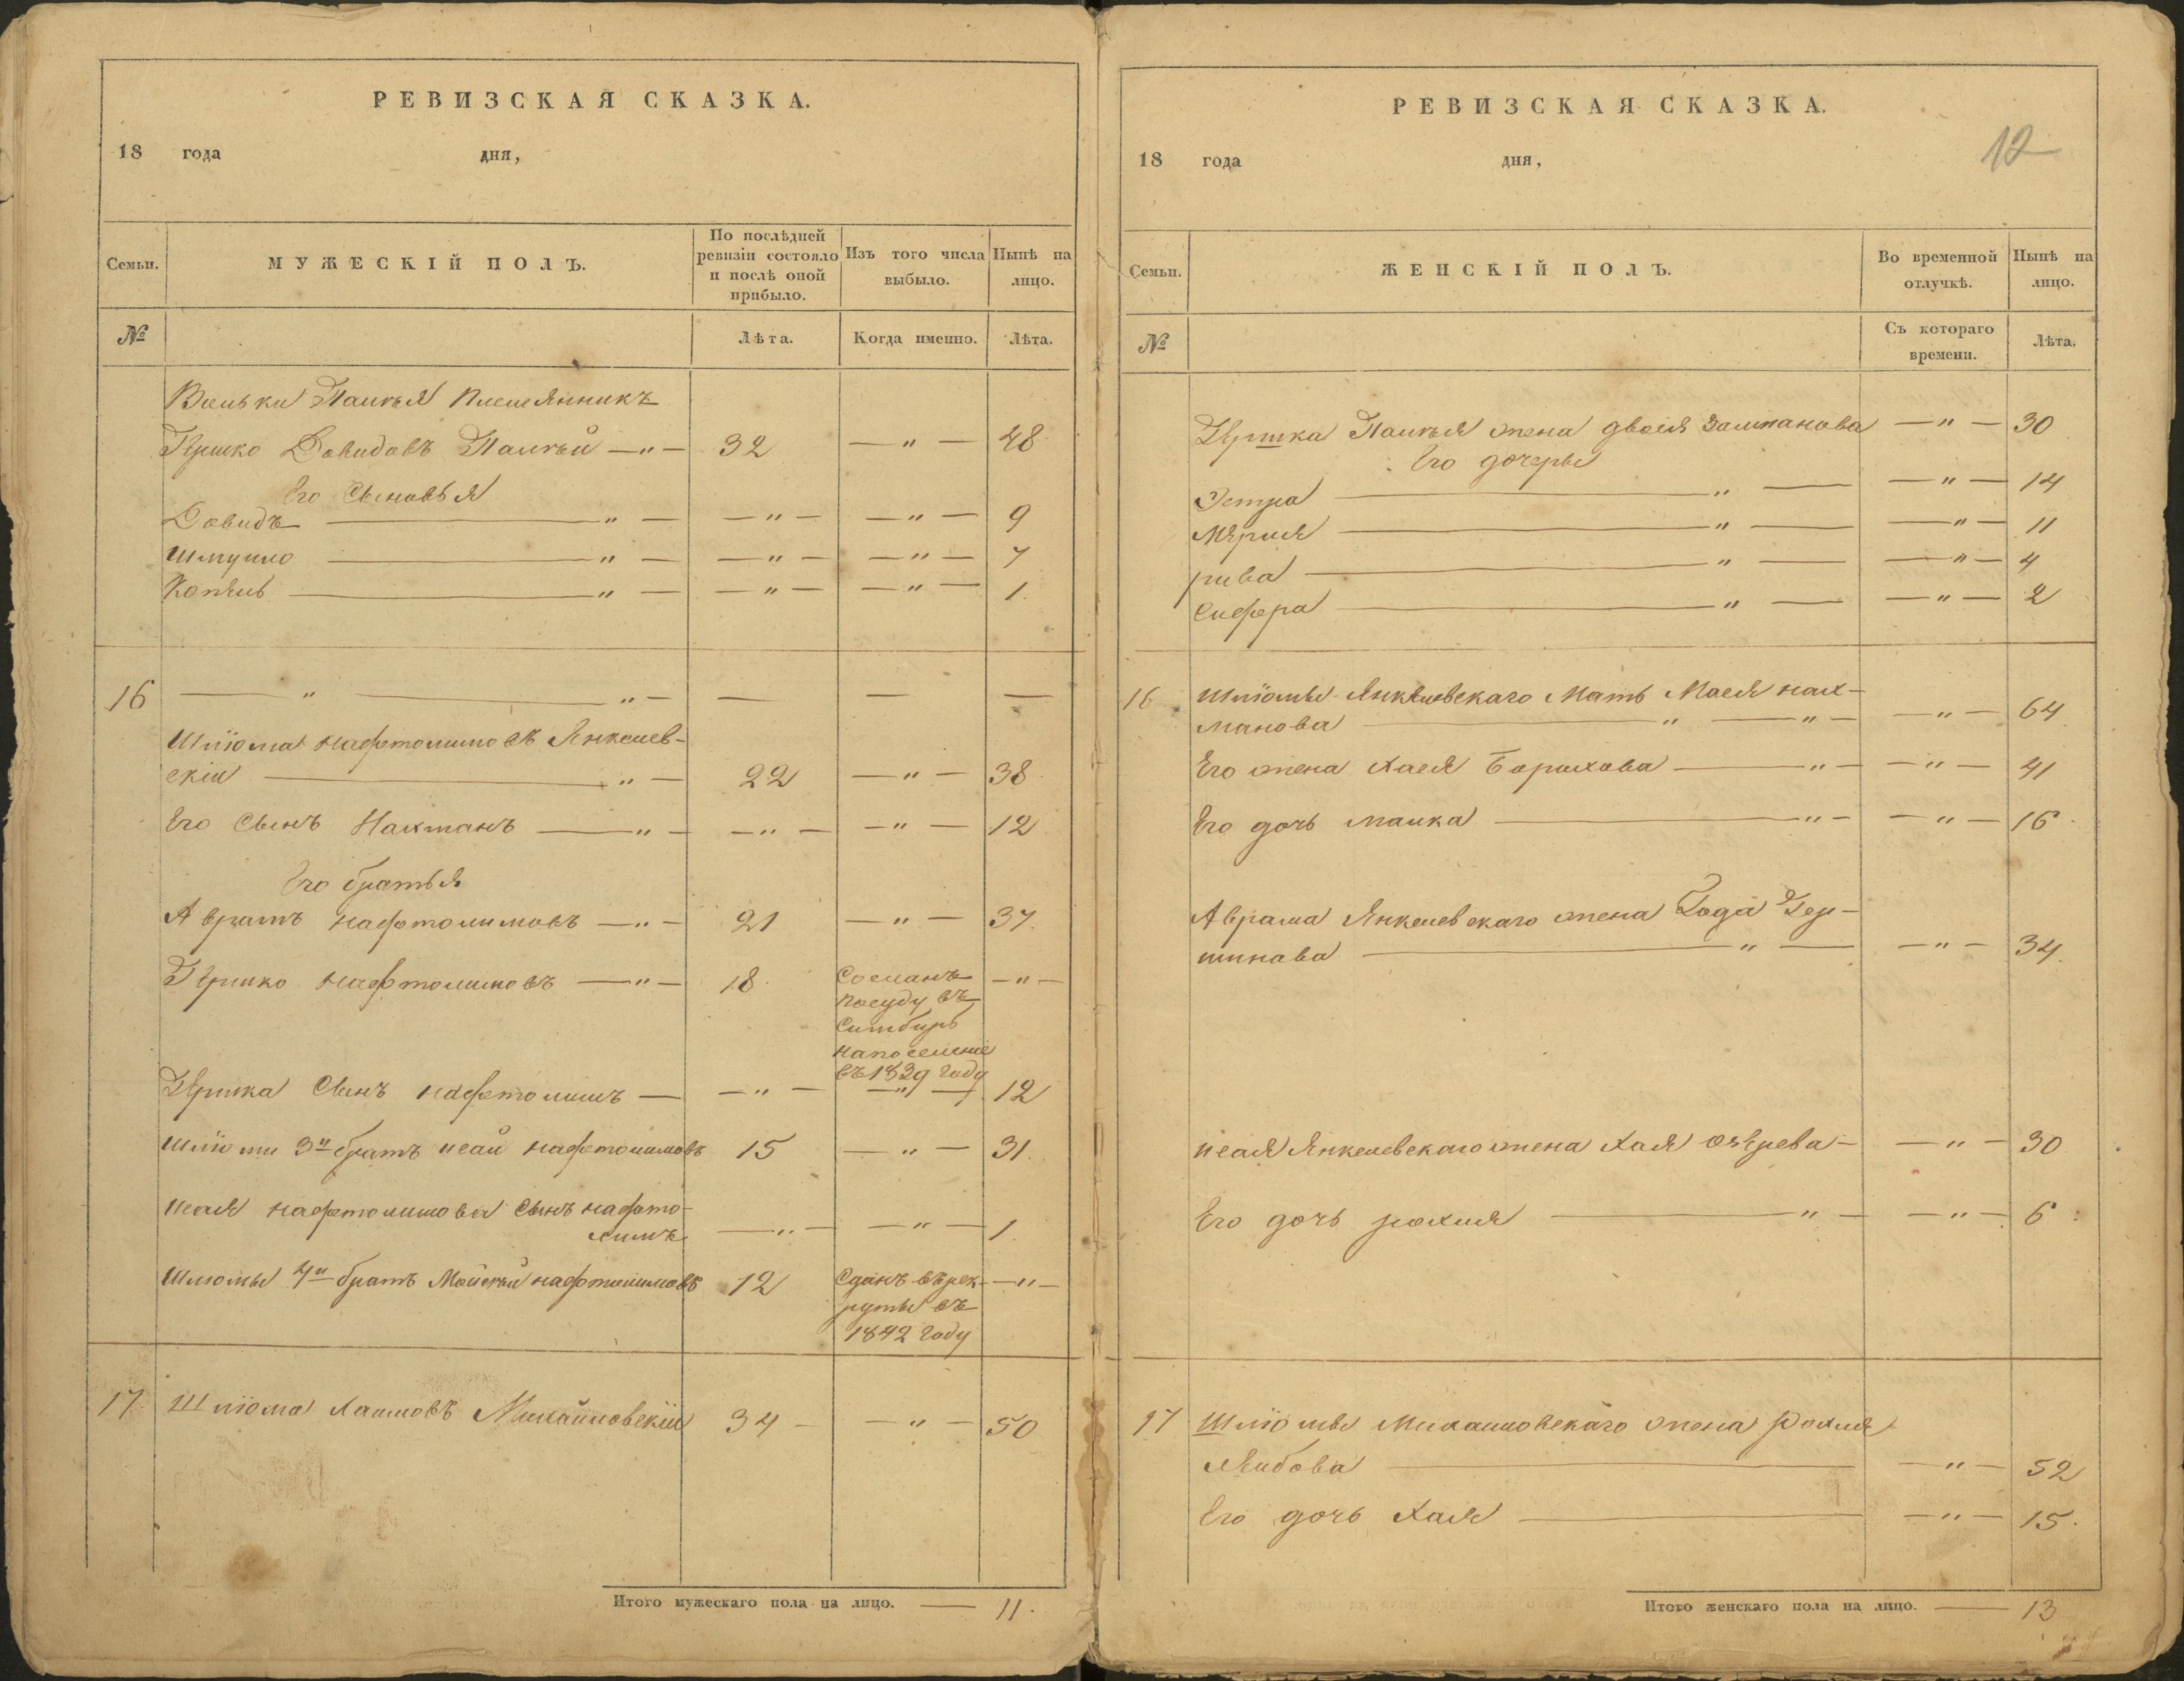 РЕВИЗСКАЯ СКАЗКА.
18 года дня,
Семьи.
МУЖЕСКІЙ ПОЛЪ.
По послѣдней
ревизіи состояло
и послѣ оной
прибыло.
Изъ того числа
выбыло.
Нынѣ на
лицо.
№
Лѣта.
Когда именно.
Лѣта.
племянникъ
Гершко Довидовъ — " — 32 — " — 48
Его Сыновья
Довидъ — " — — " — — " — 9
Шмуило — " — — " — — " — 7
— " — — " — — " — 1.
16 — " — " — — — —
Шліома Нафтолимовъ Янкелев-
скій — " — 22 — " — 38
Его Сынъ Нахманъ — " — — " — — " — 12
Его братья
Аврамъ Нафтолимовъ — " — 21 — " — 37.
Гершко Нафтолимовъ — " — 18 — " —
Сосланъ
посуду въ
Симбирь
на поселеніе
въ 1839 году
Гершка Сынъ Нафтолимъ — — " — — " — 12
Шліомы 3й братъ Исай Нафтолимовъ 15 — " — 31.
Исая Нафтолимова Сынъ Нафто-
лимъ — " — — " — 1.
Шліомы 4й братъ Мойсѣй Нафтолимовъ 12 — " —
Сданъ въ рек-
руты въ
1842 году
17 Шліома Хаимовъ Михайловскій 34 — — " — 50
Итого мужескаго пола на лицо. — 11.
РЕВИЗСКАЯ СКАЗКА.
12
18 года дня,
Семьи.
ЖЕНСКІЙ ПОЛЪ.
Во временной
отлучкѣ.
Нынѣ на
лицо.
№
Съ котораго
времени.
Лѣта.
Гершка жена Двося Залманова — " — 30
Его дочеры
Эстра — " — — " — 14
— " — — " — 11
рива — " — — " — 4
Сифра — " — — " — 2
16 Шліомы Янкелевскаго Мать Мася Нах-
манова — " — " — — " — 64
Его жена Хася Борухова — " — — " — 41
Его дочь Малка — " — — " — 16
Аврама Янкелевскаго жена Года Гер-
шкова — " — — " — 34.
Исая Янкелевскаго жена Хая — — " — 30
Его дочь рохля — " — — " — 6
17 Шліомы Михайловскаго жена Рохля
Лейбова — — " — 52
Его дочь Хая — — " — 15.
Итого женскаго пола на лицо. — 13